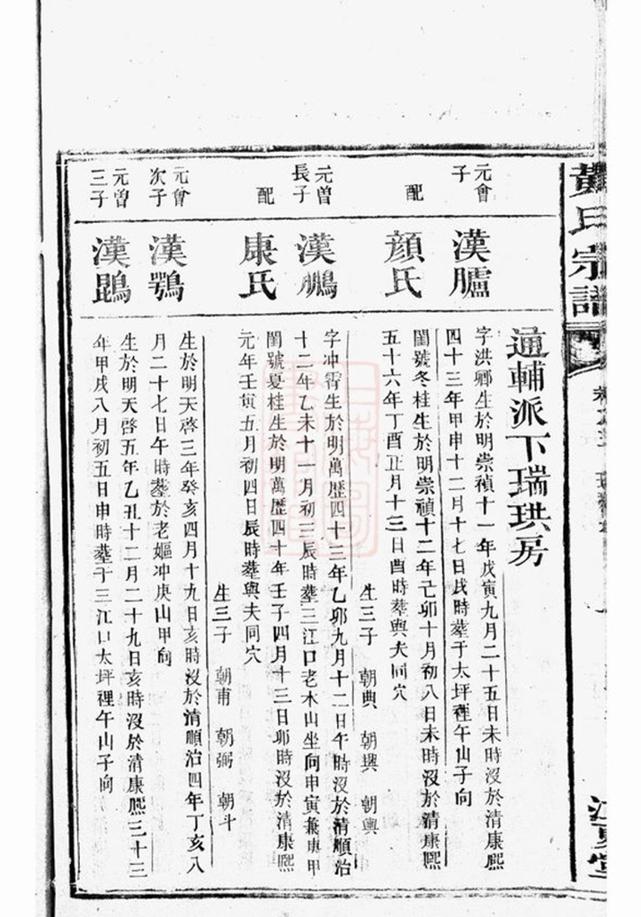 黃氏宗譜
江夏堂
通輔派下瑞珙房
元會子
漢臚
字洪卿生於明崇禎十一年戊寅九月二十五日未時沒於清康熙
四十三年甲申十二月十七日戌時塟于太坪裡午山子向
配
顏氏
閨號冬桂生於明崇禎十二年己卯十月初八日未時沒於清康熙
五十六年丁酉正月十三日酉時塟與夫同穴
生三子 朝典 朝興 朝輿
元曾長子
漢鵬
字冲霄生於明萬歷四十三年乙卯九月十二日午時沒於清順治
十二年乙未十一月初三辰時塟三江口老木山坐向申寅兼庚甲
配
康氏
閨號夏桂生於明萬歷四十年壬子四月十三日卯時沒於清康熙
元年壬寅五月初四日辰時塟與夫同穴
生三子 朝甫 朝弼 朝斗
元會次子
漢鶚
生於明天啓三年癸亥四月十九日亥時沒於清順治四年丁亥八
月二十七日午時塟於老嫗冲庚山甲向
元曾三子
漢鵾
生於明天啓五年乙丑十二月二十九日亥時沒於清康熙三十三
年甲戌八月初五日申時塟于三江口太坪裡午山子向